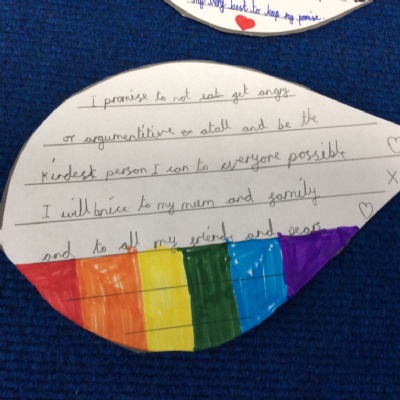 my very best to keep my promise.
I promise to not eat get angry
or argumentitive or atall and be the
kindest person I can to everyone possible
I will be nice to my mum and family
and to all my friends and
X